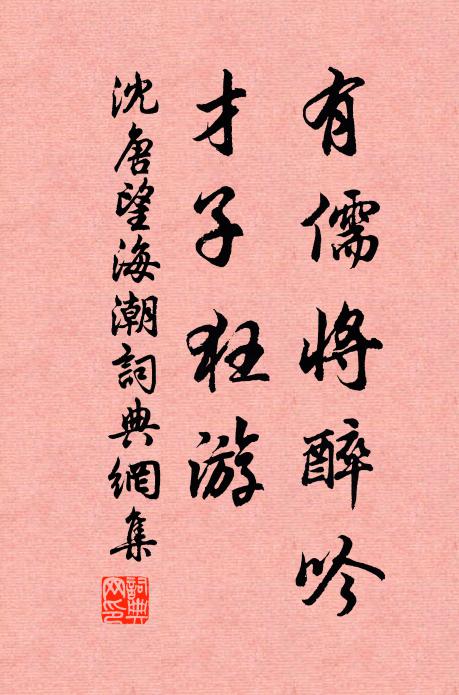 有儒将醉吟
才子狂游
沈唐望海潮詞典網集
詞典网印